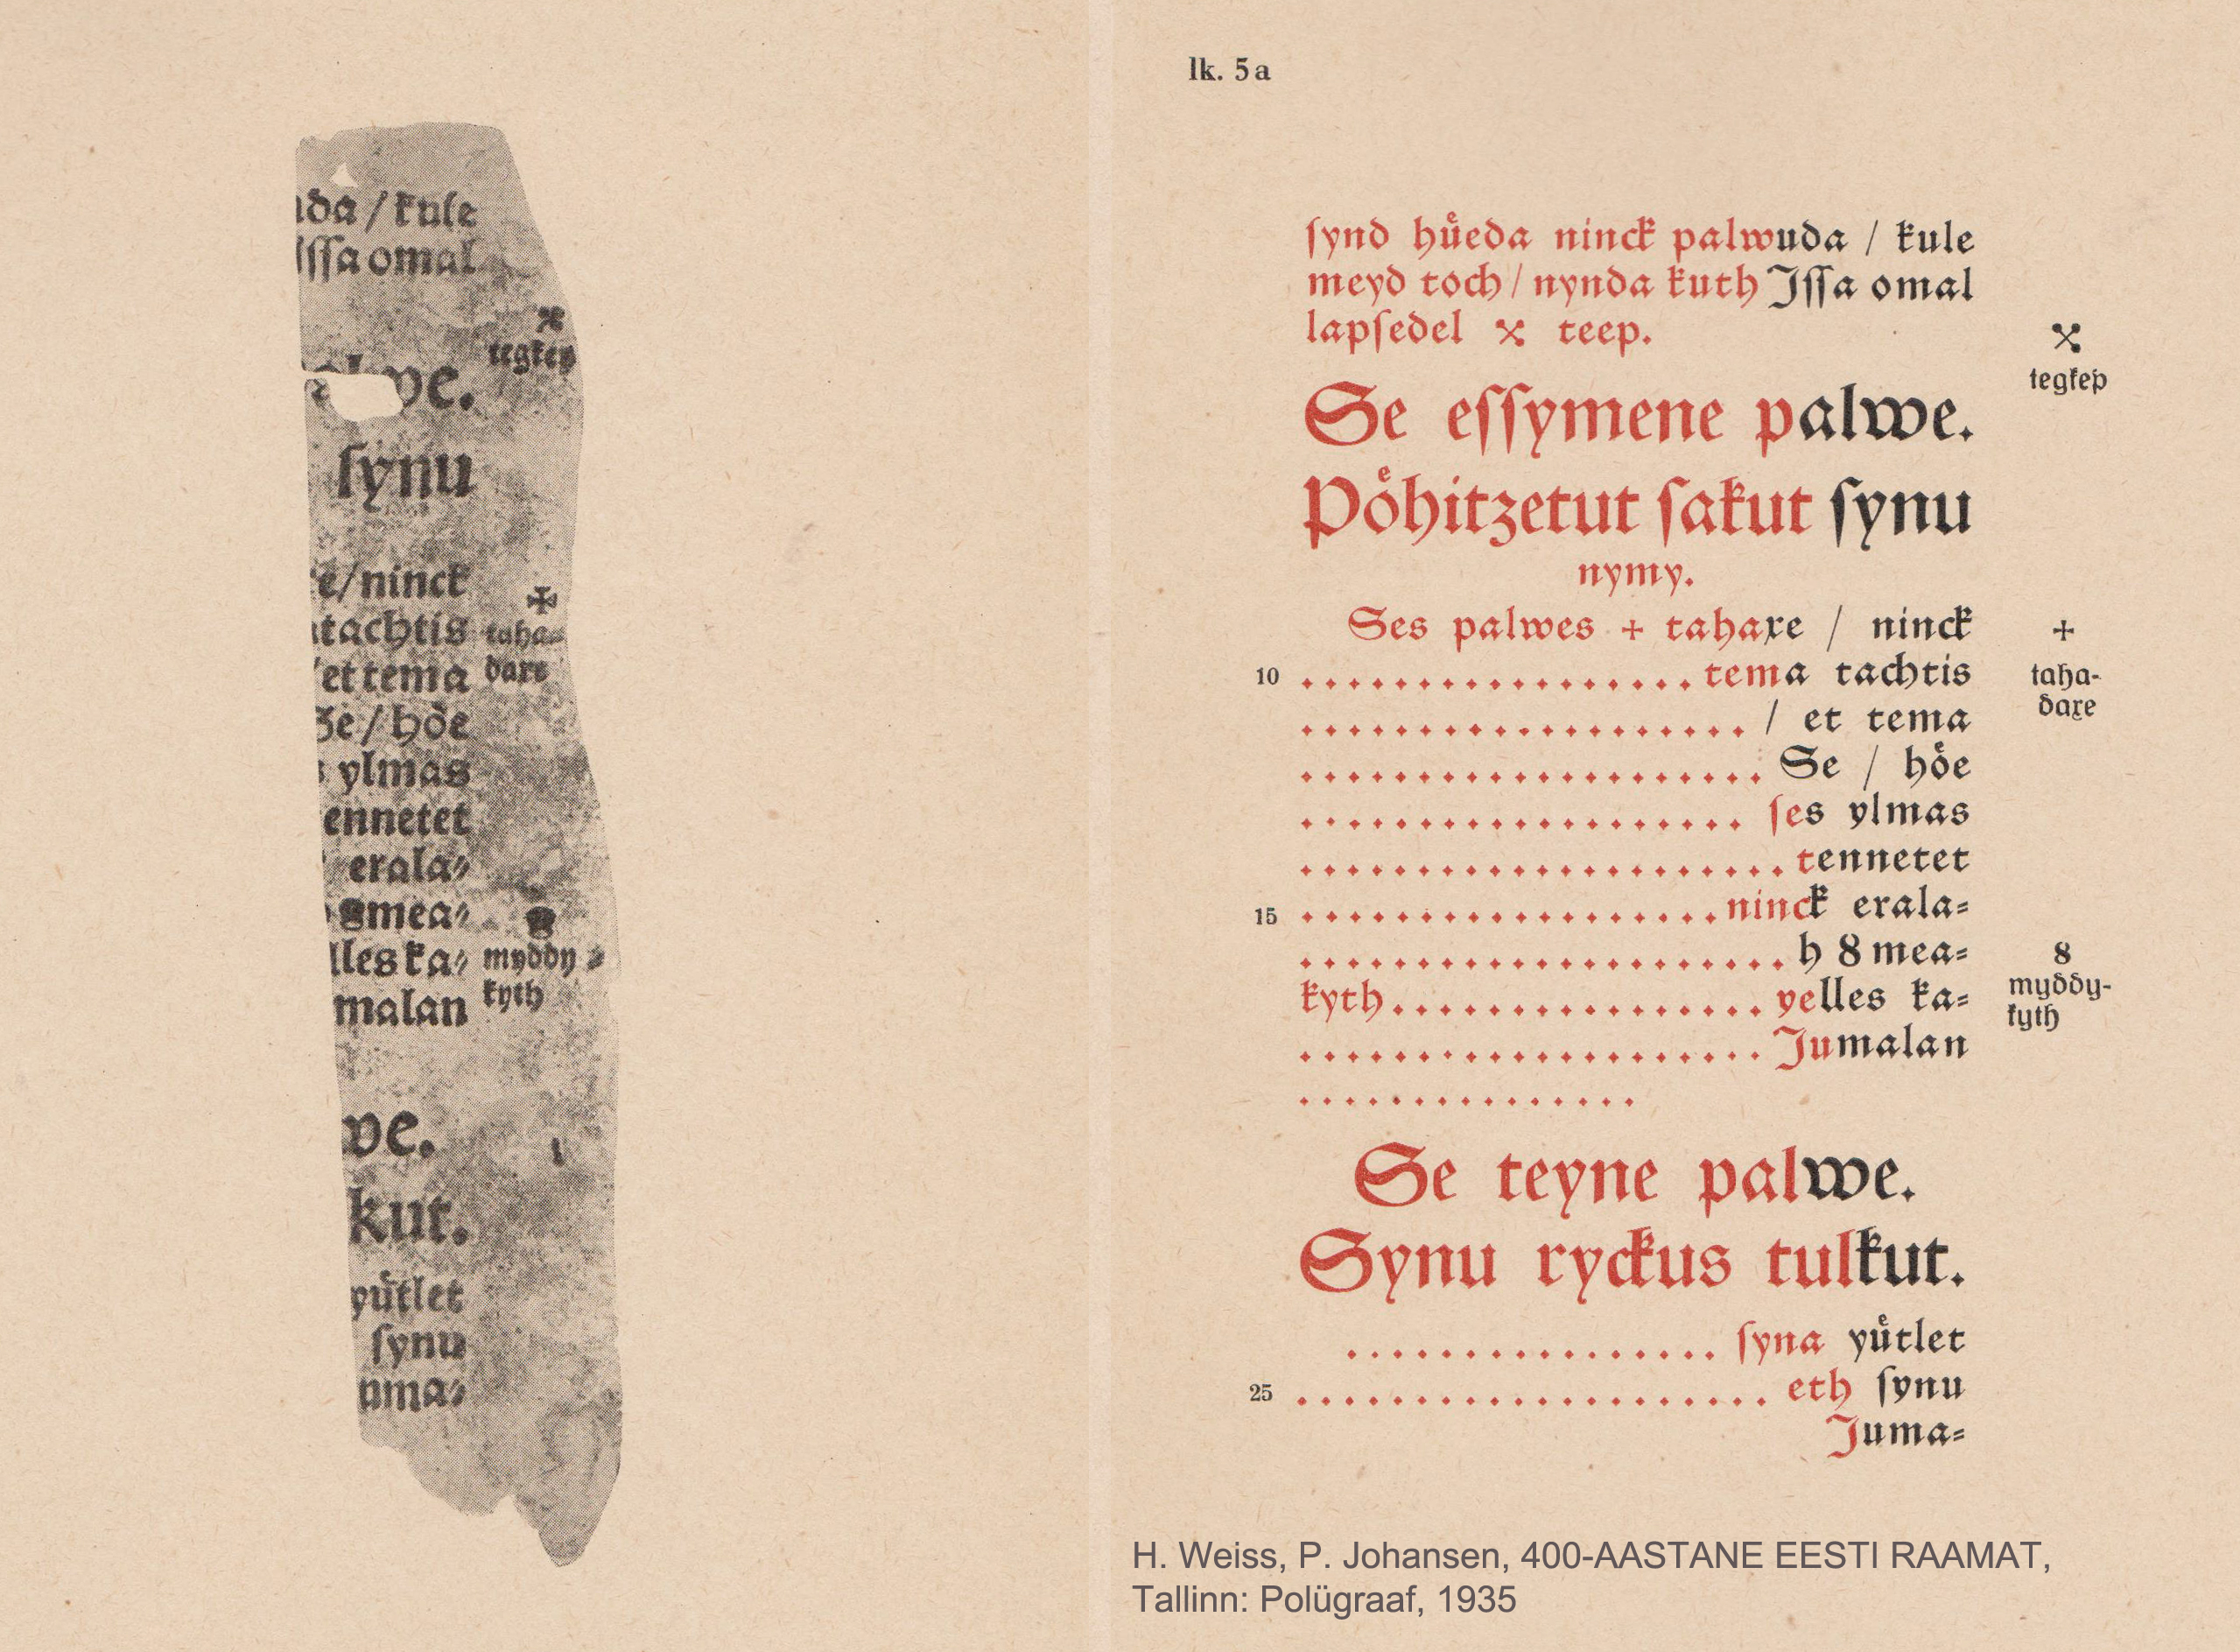 uda / kule
Iſſa omal
tegkep
alwe.
ſynu
xe / ninck
a tachtis
taha-
/ et tema
daxe
Se / hoͤe
s ylmas
ennetet
erala=
h 8 mea=
lles ka=
myddy=
malan
kyth
we.
kut.
yuͤtlet
ſynu
uma=
lk. 5a
ſynd huͤeda ninck palwuda / kule
meyd toch / nynda kuth Iſſa omal
lapſedel × teep.
×
tegkep
Se eſſymene palwe.
Poͤhitzetut ſakut ſynu
nymy.
Ses palwes + tahaxe / ninck
+
10 ................. tema tachtis
taha-
daxe
................... / et tema
.................... Se / hoͤe
................... ſes ylmas
..................... tennetet
15 .................. ninck erala=
..................... h 8 mea=
8
myddy-
kyth ................ yelles ka=
kyth
.................... Jumalan
...............
Se teyne palwe.
Synu ryckus tulkut.
................ ſyna yuͤtlet
25 .................... eth ſynu
Juma=
H. Weiss, P. Johansen, 400-AASTANE EESTI RAAMAT,
Tallinn: Polügraaf, 1935